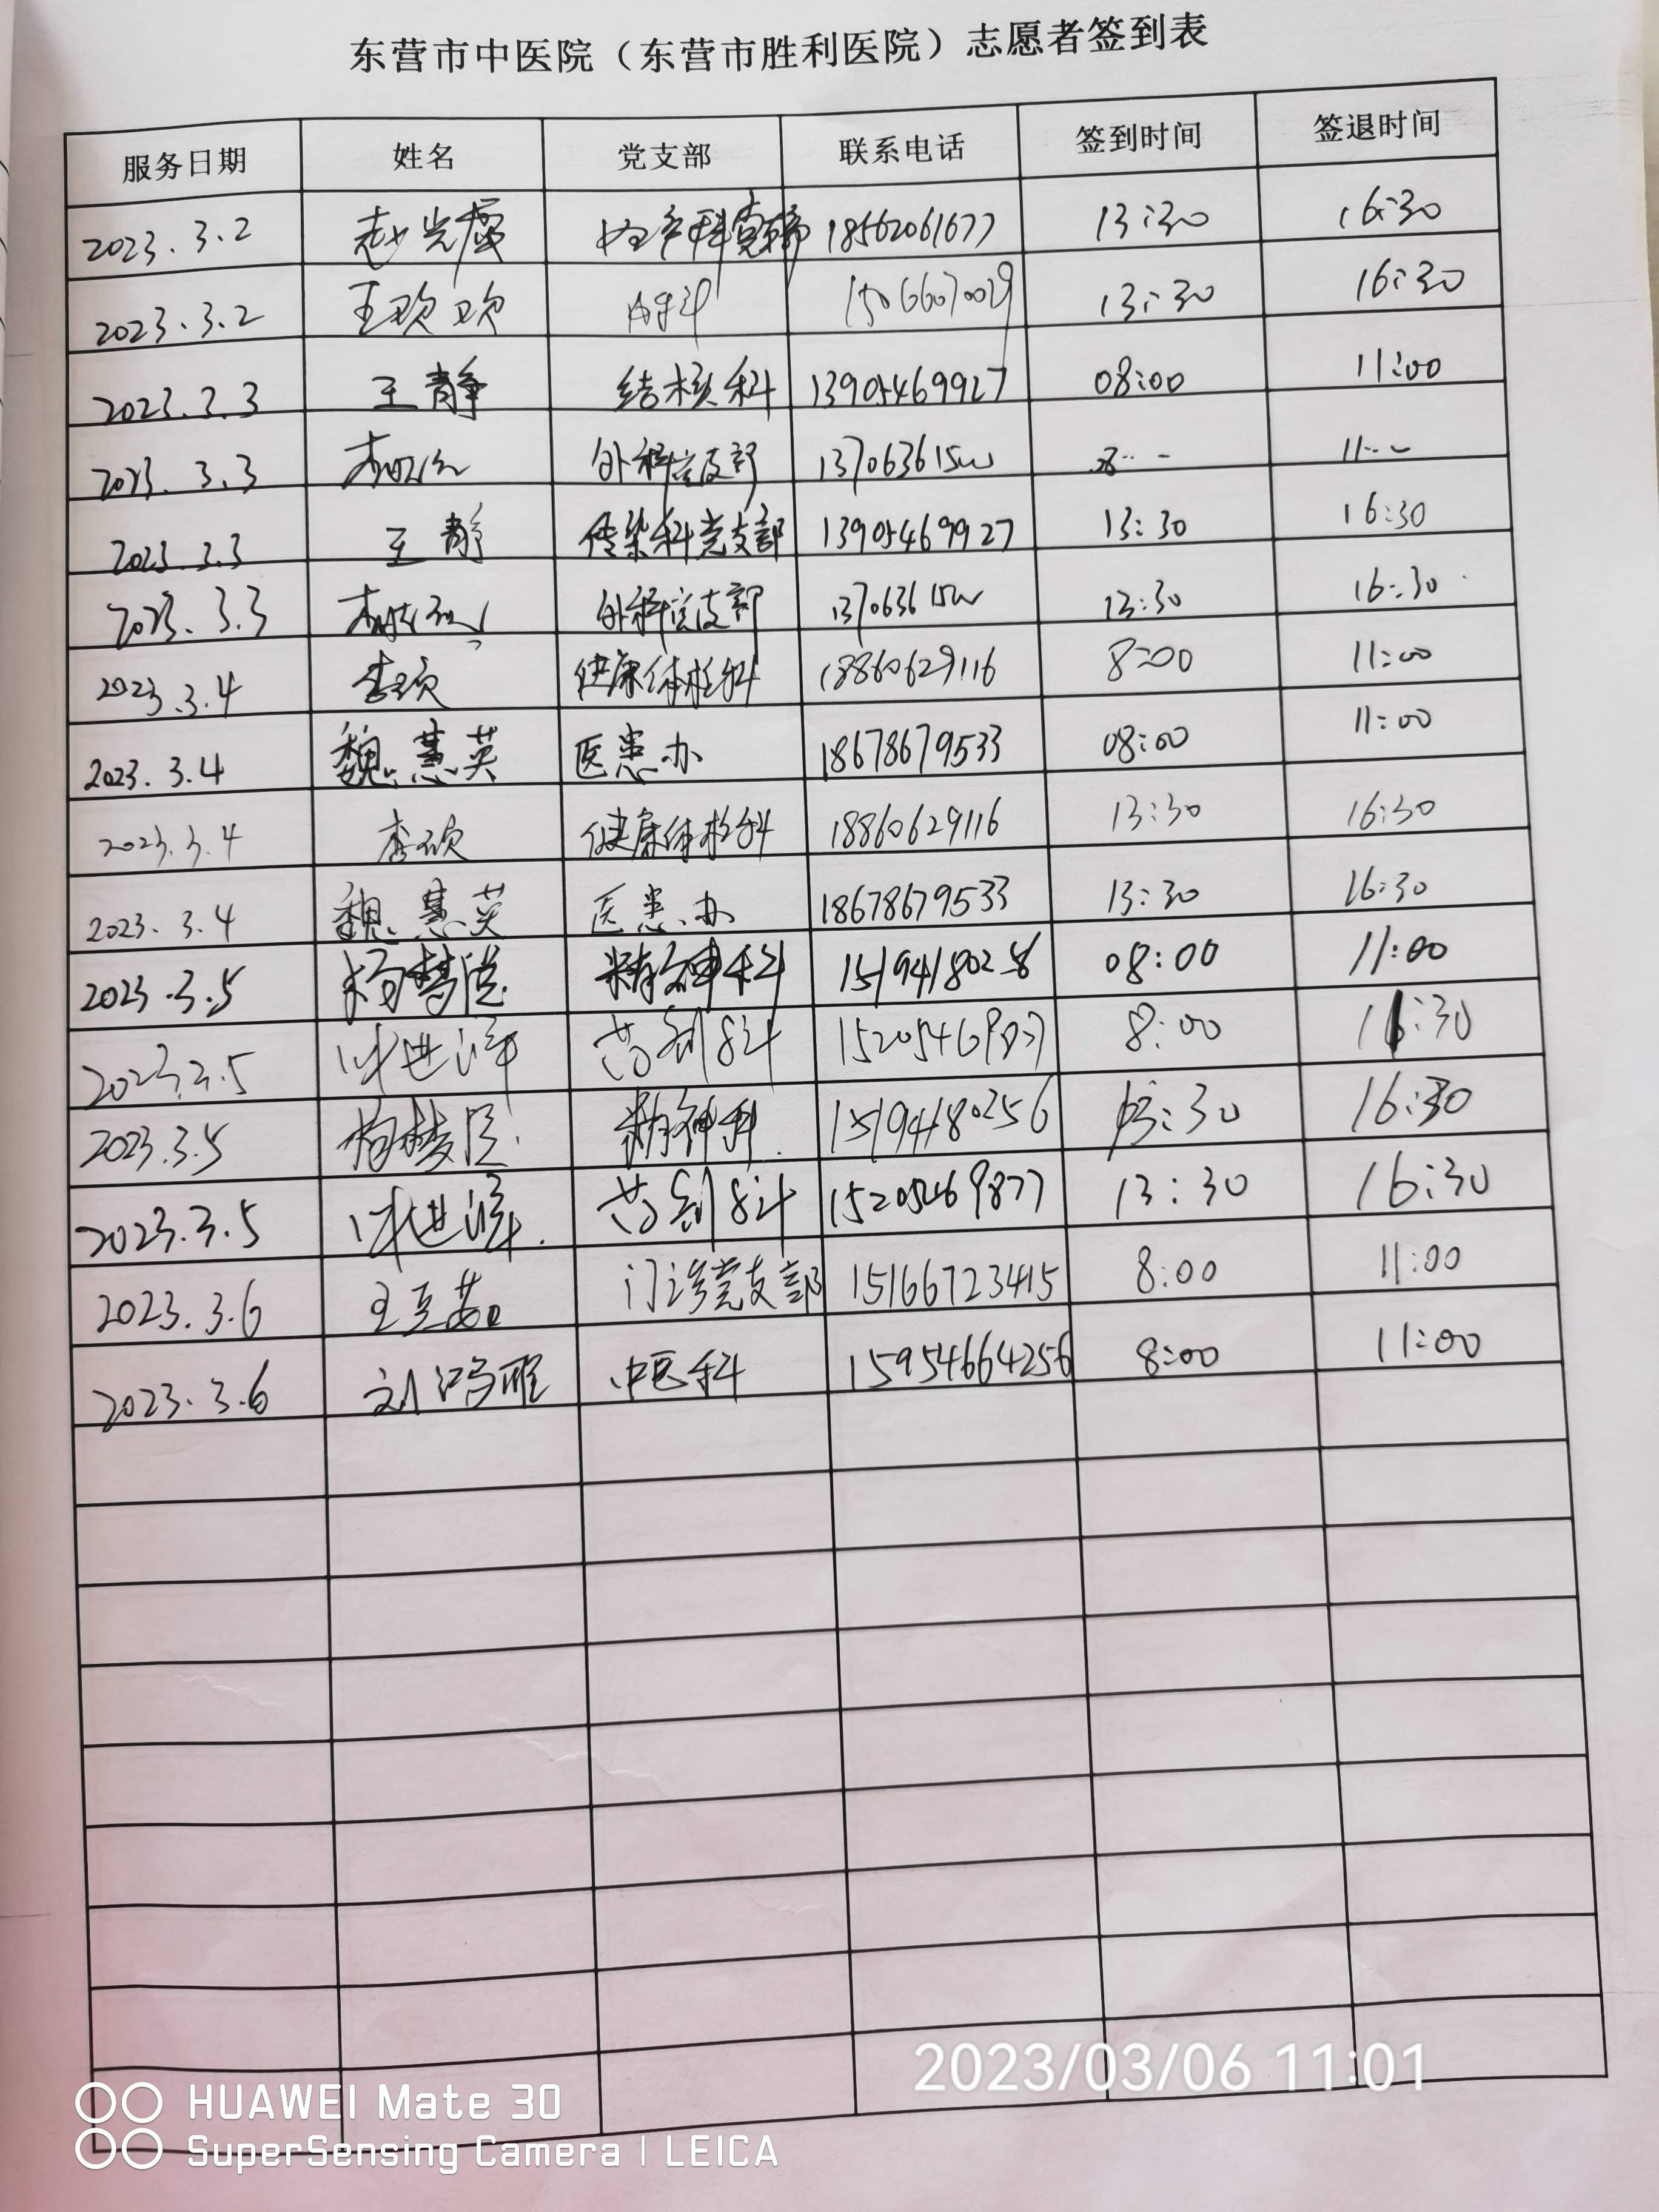 东营市中医院（东营市胜利医院）志愿者签到表
服务日期 姓名 党支部 联系电话 签到时间 签退时间
2023.3.2 赵 妇产科党 18562061677 13:30 16:30
2023.3.2 王欢欢 15066070029 13:30 16:30
2023.3.3 王静 结核科 13905469927 08:00 11:00
2023.3.3 外科党支部
2023.3.3 王静 传染科党支部 13905469927 13:30 16:30
2023.3.3 外科党支部 13:30 16:30
2023.3.4 李硕 健康体检科 18860629116 8:00 11:00
2023.3.4 魏慧英 医患办 18678679533 08:00 11:00
2023.3.4 李硕 健康体检科 18860629116 13:30 16:30
2023.3.4 魏慧英 医患办 18678679533 13:30 16:30
2023.3.5 杨梦 精神科 08:00 11:00
2023.3.5 药剂科 15205469877 8:00
2023.3.5 杨梦 精神科 15194180256 13:30 16:30
2023.3.5 药剂科 15205469877 13:30 16:30
2023.3.6 王亚茹 门诊党支部 15166723415 8:00 11:00
2023.3.6 刘鸿雁 中医科 15954664256 8:00 11:00
2023/03/06 11:01
HUAWEI Mate 30
SuperSensing Camera | LEICA